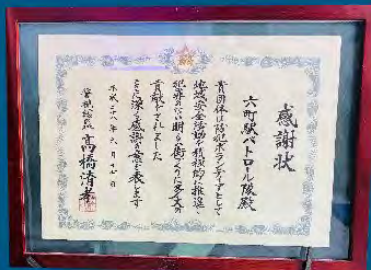 感謝状
六町駅パトロール隊殿
貴団体は防犯ボランティアとして
地域安全活動を積極的に推進し
犯罪のない明るい街づくりに多大の
貢献をされました
よって深く感謝の意を表します
平成二八年六月 日
警視総監 高橋清孝